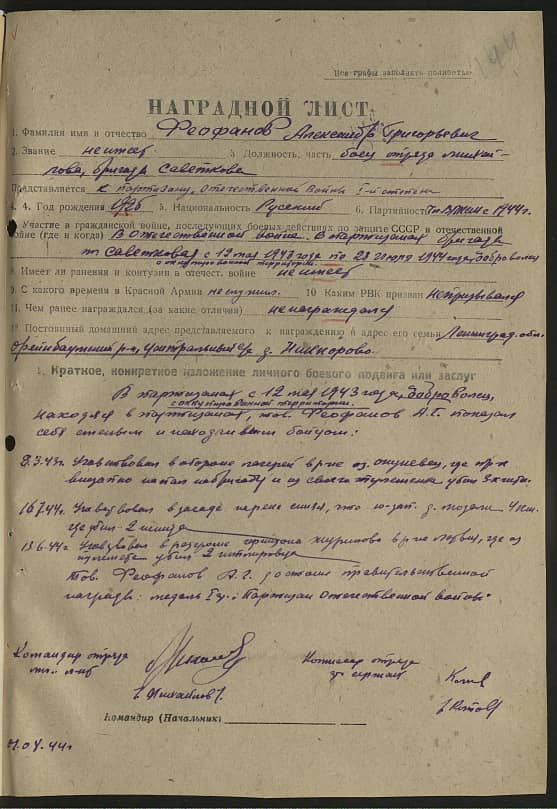 Все графы заполнять полностью
144
НАГРАДНОЙ ЛИСТ
1. Фамилия имя в отчество Феофанов Александр Григорьевич
2. Звание не имеет 3 Должность, часть боец отряда Михай-
лова, бригада Саветкова
Представляется к партизану, Отечественной войны I-й степени
4. Год рождения 1926 5. Национальность Русский 6. Партийность с 1944 г.
Участие в гражданской войне, последующих боевых действиях по защите СССР и отечественной
войне (где и когда) В Отечественной войне. В партизанах бригада
Саветкова с 12 мая 1943 года по 1944 года, доброволец
с оккупированной территории.
8 Имеет ли ранения и контузии в отечест. войне не имеет
9 С какого времени в Красной Армии не служил. 10 Каким РВК призван не призывался
11. Чем ранее награждался (за какие отличия) не награждался
12. Постоянный домашний адрес представляемого к награждению и адрес его семьи Ленинград. обл.
р-н, д.
Краткое, конкретное изложение личного боевого подвига или заслуг
В партизанах с 12 мая 1943 года, доброволец,
с оккупированной территории.
находясь в партизанах, тов. Феофанов А.Г. показал
себя смелым и находчивым бойцом:
Участвовал в обороне лагерей в р-не оз. где пр-к
напал на бригаду и из своего убил 3х
Участвовал в засаде ю-зап. д. 4 км.
где убил 2 немца
Участвовал в разгроме гарнизона в р-не где из
пулемета убил 2 гитлеровца
Тов. Феофанов А.Г. достоин правительственной
награды: медаль I ст. "Партизан Отечественной войны"
Командир отряда
/Михайлов/
Комиссар отряда
сержант
/Котов/
Командир (Начальник)
44 г.